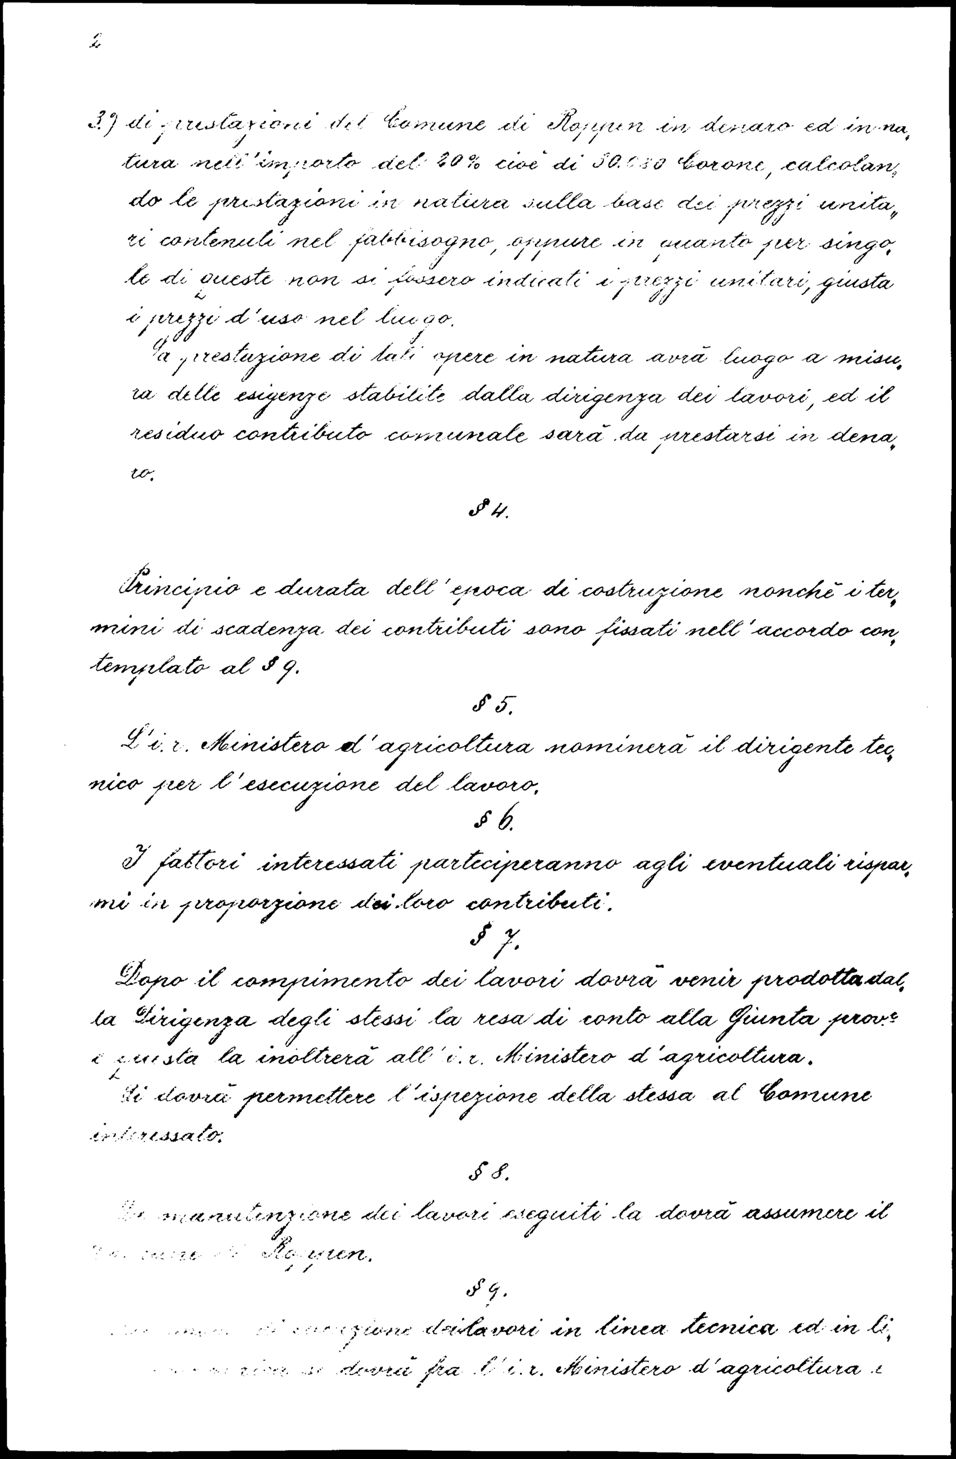 2
3.) di prestazioni del Comune di Roppen in denaro ed in na„
tura nell'importo del 20% cioè di Corone, calcolan„
do le prestazioni in natura sulla base dei prezzi unita„
ri contenuti nel fabbisogno, oppure in quanto per singo„
le di queste non si fossero indicati i prezzi unitari, giusta
i prezzi d'uso nel luogo.
La prestazione di tali opere in natura avrà luogo a misu„
ra delle esigenze stabilite dalla dirigenza dei lavori, ed il
residuo contributo comunale sarà da prestarsi in dena„
ro.
§ 4.
Principio e durata dell'epoca di costruzione nonchè i ter„
mini di scadenza dei contributi sono fissati nell'accordo con„
templato al § 9.
§ 5.
L'i. r. Ministero d'agricoltura nominerà il dirigente tec„
nico per l'esecuzione del lavoro.
§ 6.
I fattori interessati parteciperanno agli eventuali rispar„
mi in proporzione dei loro contributi.
§ 7.
Dopo il compimento dei lavori dovrà venir prodotta dal„
la Dirigenza degli stessi la resa di conto alla Giunta prov.e
e questa la inoltrerà all'i. r. Ministero d'agricoltura.
Si dovrà permettere l'ispezione della stessa al Comune
interessato.
§ 8.
La manutenzione dei lavori eseguiti la dovrà assumere il
Comune di Roppen.
§ 9.
di esecuzione dei lavori in linea tecnica ed in li„
si dovrà fra l'i. r. Ministero d'agricoltura e